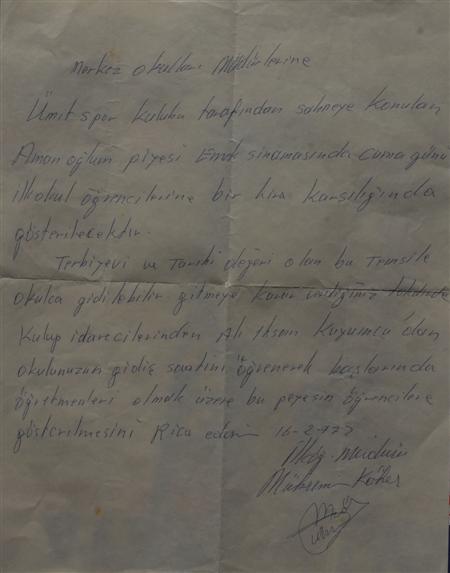 Merkez okulları Müdürlerine
Ümit spor kulubu tarafından sahneye konulan
Aman oğlum piyesi Emek sinamasında cuma günü
ilkokul öğrencilerine bir lira karşılığında
gösterilecektir.
Terbiyevi ve Tarihi değeri olan bu Temsile
okulca gidilebilir gitmeye karar verdiğiniz
kulup idarecilerinden Ali ihsan Kuyumcu'dan
okulunuzun gidiş saatini öğrenerek başlarında
öğretmenleri olmak üzere bu peyesin öğrencilere
gösterilmesini Rica ederim
İlköğ. Müdürü